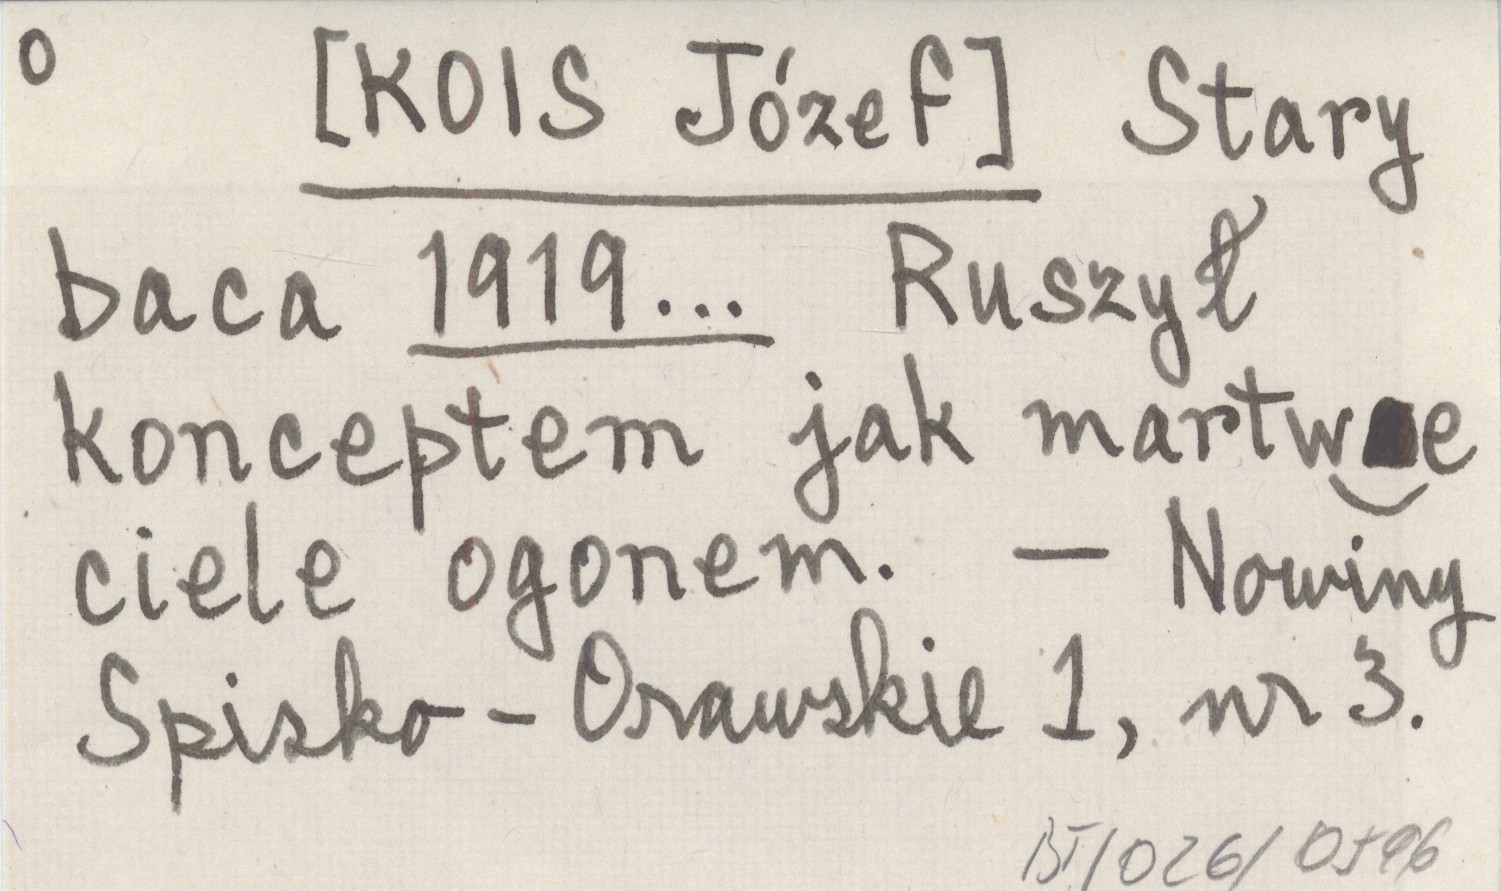 o [KOIS Józef] Stary
baca 1919... Ruszył
konceptem jak martwe
ciele ogonem. — Nowiny
Spisko-Orawskie 1, nr 3.
BT/026/0596